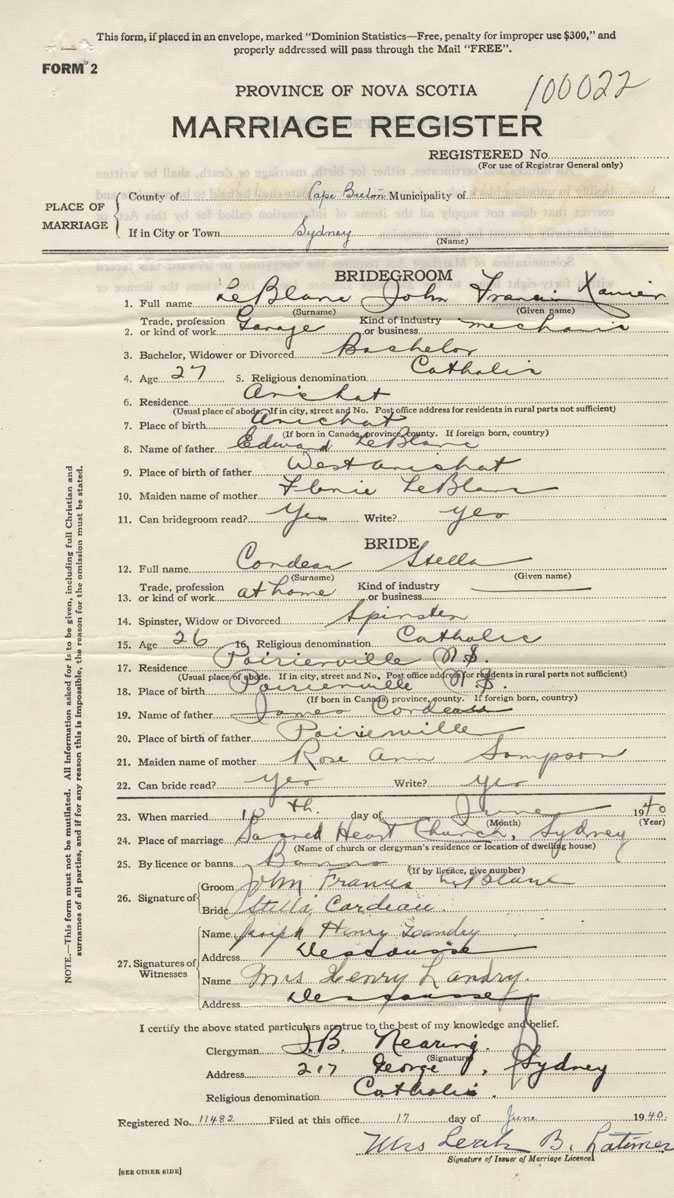 This form, if placed in an envelope, marked "Dominion Statistics—Free, penalty for improper use $300," and
properly addressed will pass through the Mail "FREE".
FORM 2
100022
PROVINCE OF NOVA SCOTIA
MARRIAGE REGISTER
REGISTERED No.
(For use of Registrar General only)
PLACE OF MARRIAGE
County of Cape Breton Municipality of
If in City or Town Sydney
(Name)
BRIDEGROOM
1. Full name LeBlanc John Francis Xavier
(Surname) (Given name)
2. Trade, profession or kind of work Garage Kind of industry or business mechanic
3. Bachelor, Widower or Divorced Bachelor
4. Age 27 5. Religious denomination Catholic
6. Residence Arichat
(Usual place of abode. If in city, street and No. Post office address for residents in rural parts not sufficient)
7. Place of birth Arichat
(If born in Canada, province, county. If foreign born, country)
8. Name of father Edward LeBlanc
9. Place of birth of father West Arichat
10. Maiden name of mother LeBlanc
11. Can bridegroom read? Yes Write? yes
BRIDE
12. Full name Cordeau Stella
(Surname) (Given name)
13. Trade, profession or kind of work at home Kind of industry or business
14. Spinster, Widow or Divorced Spinster
15. Age 26 16. Religious denomination Catholic
17. Residence Poirierville N.S.
(Usual place of abode. If in city, street and No. Post office address for residents in rural parts not sufficient)
18. Place of birth Poirierville N.S.
(If born in Canada, province, county. If foreign born, country)
19. Name of father James Cordeau
20. Place of birth of father Poirierville
21. Maiden name of mother Rose Ann Sampson
22. Can bride read? yes Write? yes
23. When married th. day of June 1940
(Month) (Year)
24. Place of marriage Sacred Heart Church, Sydney
(Name of church or clergyman's residence or location of dwelling house)
25. By licence or banns Banns
(If by licence, give number)
26. Signature of
Groom John Francis LeBlanc
Bride Stella Cordeau.
27. Signatures of Witnesses
Name Joseph Henry Landry
Address Descousse
Name Mrs Henry Landry.
Address Descousse
I certify the above stated particulars are true to the best of my knowledge and belief.
Clergyman J.B. Nearing.
(Signature)
Address 217 George, Sydney
Religious denomination Catholic.
Registered No. 11482 Filed at this office 17 day of June 1940.
Mrs Leah B. Latimer
Signature of Issuer of Marriage Licence
[SEE OTHER SIDE]
NOTE.—This form must not be mutilated. All information asked for is to be given, including full Christian and
surnames of all parties, and if for any reason this is impossible, the reason for the omission must be stated.